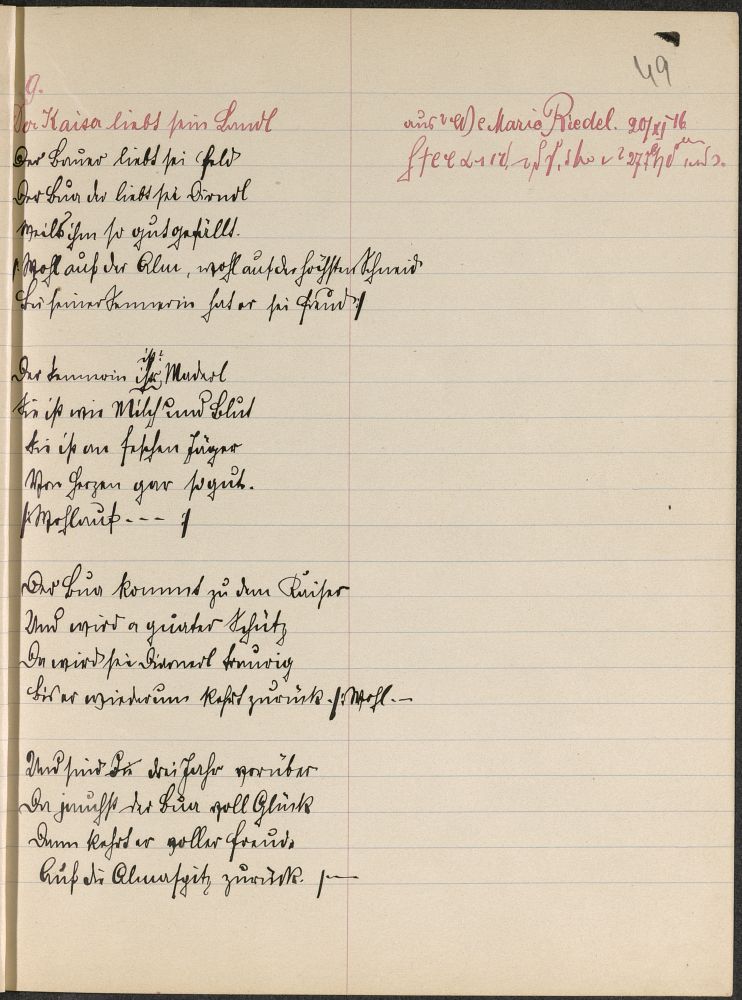 49
9.
Der Kaiser liebt sein Landl
Marie Riedel. 20/XI 16
Der Bauer liebt sei Feld
Der Bua der liebt sei Dirndl
Weils ihm so gut gefällt.
/: Wohl auf der Alm, wohl auf der höchsten Schneid
Bei seiner Sennerin hat er sei Freud :/
Der Sennerin ihr Maderl
Sie ist wie Milch und Blut
Sie ist an feschen Jäger
Von Herzen gar so gut.
/: Wohlauf - - - :/
Der Bua kommt zu dem Kaiser
Und wird a guater Schütz
Da wird sei Diarnerl traurig
Bis er wiederum kehrt zurück. /: Wohl. —
Und sind die drei Jahr vorüber
Da jauchzt der Bua voll Glück
Dann kehrt er voller Freude
Auf die Almaspitz zurück.